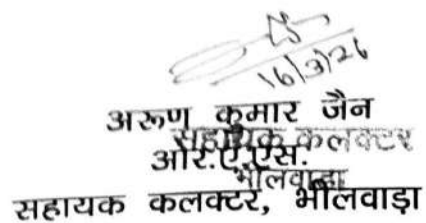 16/3/26
अरूण कुमार जैन
सहायक कलक्टर
आर.ए.एस.
भीलवाडा
सहायक कलक्टर, भीलवाड़ा